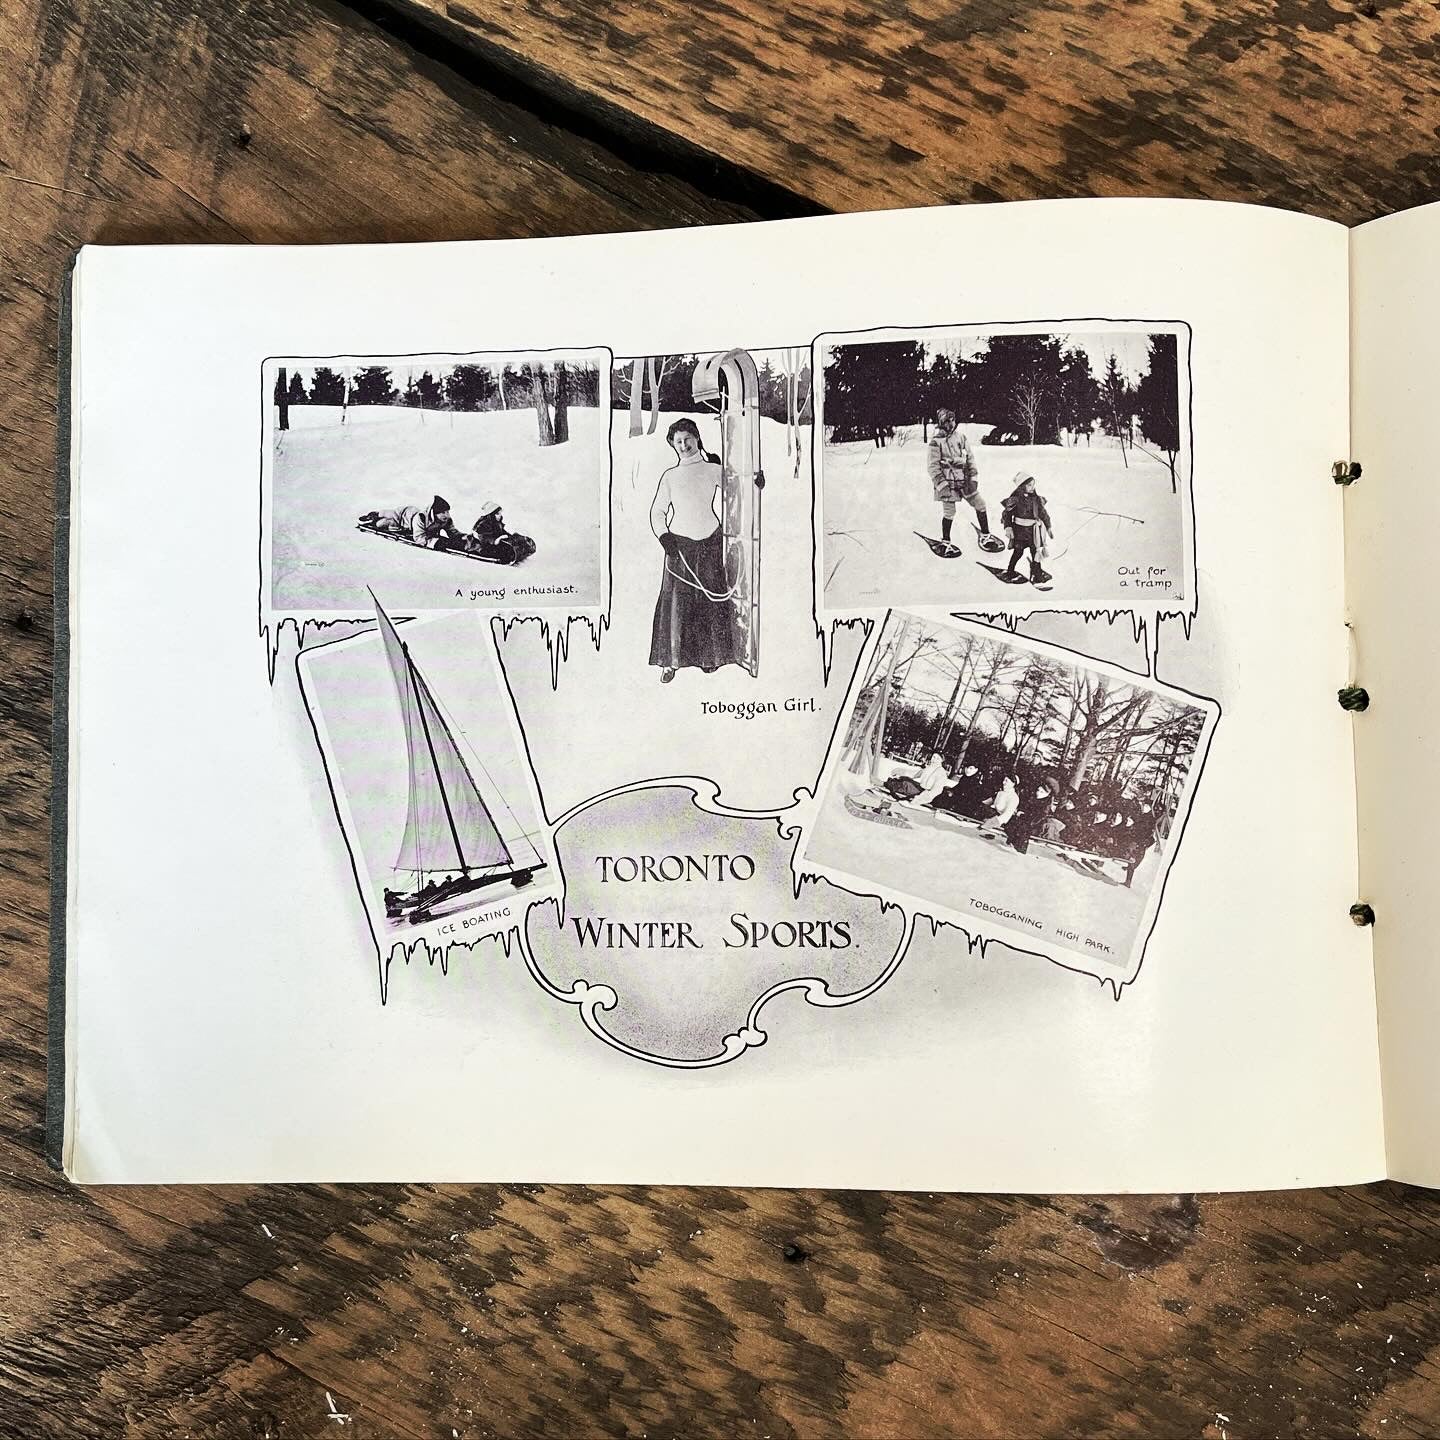 A young enthusiast.
Toboggan Girl.
Out for
a tramp
ICE BOATING
TOBOGGANING HIGH PARK.
TORONTO
WINTER SPORTS.